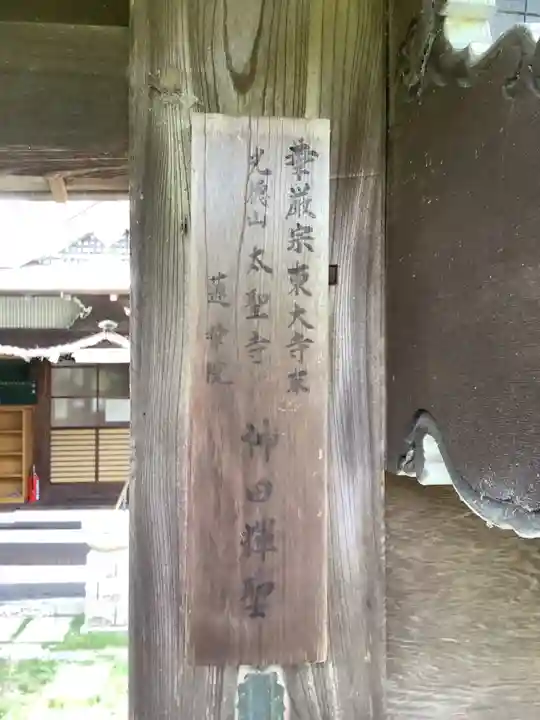 華厳宗東大寺末
光徳山太聖寺
蓮華院
神田輝聖